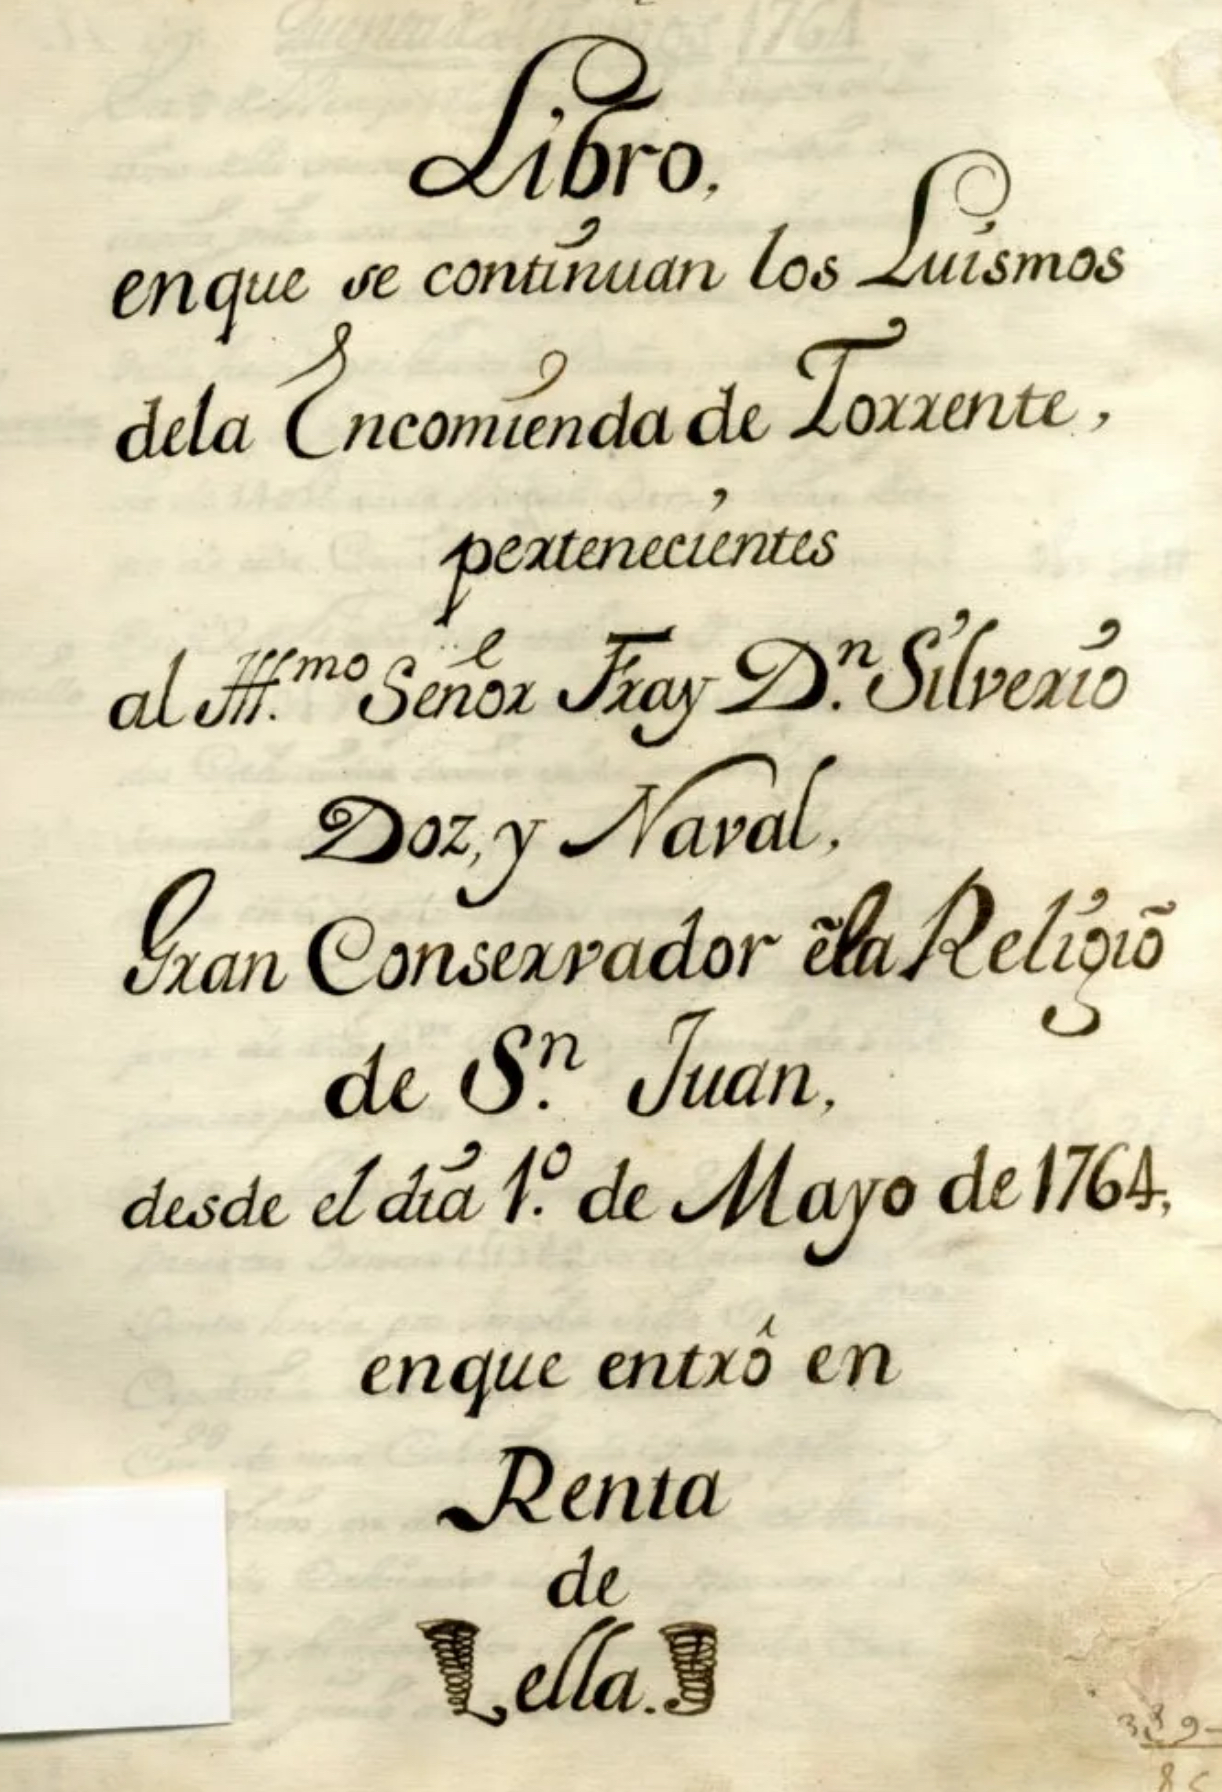 Libro,
enque se continuan los Luismos
dela Encomienda de Torrente,
pertenecientes
al Ill.mo Señor Fray D.n Silverio
Doz, y Naval,
Gran Conservador ẽla Religiõ
de S.n Juan,
desde el dia 1.º de Mayo de 1764,
enque entrô en
Renta
de
ella.